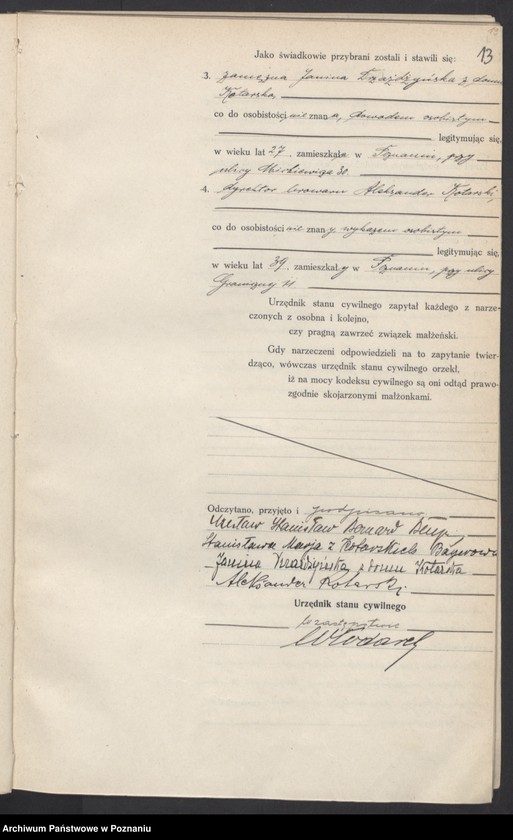 13
Jako świadkowie przybrani zostali i stawili się:
3. zamężna Janina Drażdżyńska z domu
Kotarska,
co do osobistości nie znana, dowodem osobistym
legitymując się,
w wieku lat 27, zamieszkała w Poznaniu, przy
ulicy Mickiewicza 30.
4. dyrektor browaru Aleksander Kotarski,
co do osobistości nie znany wykazem osobistym
legitymując się,
w wieku lat 39, zamieszkały w Poznaniu, przy ulicy
Granicznej
Urzędnik stanu cywilnego zapytał każdego z narze-
czonych z osobna i kolejno,
czy pragną zawrzeć związek małżeński.
Gdy narzeczeni odpowiedzieli na to zapytanie twier-
dząco, wówczas urzędnik stanu cywilnego orzekł,
iż na mocy kodeksu cywilnego są oni odtąd prawo-
zgodnie skojarzonymi małżonkami.
Odczytano, przyjęto i podpisano
Stanisław Bernard
Stanisława Marja z Kotarskich
Janina Drażdżyńska z domu Kotarska
Aleksander Kotarski.
Urzędnik stanu cywilnego
w zastępstwie
Włodarek
Archiwum Państwowe w Poznaniu